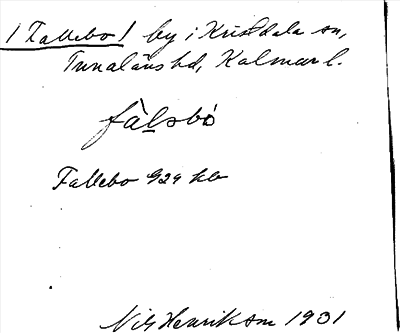 / Fallebo / by i Kristdala sn,
Tunaläns hd, Kalmar l.
fàlsbó
Fallebo G24 kb
Nils Henrikson 1931